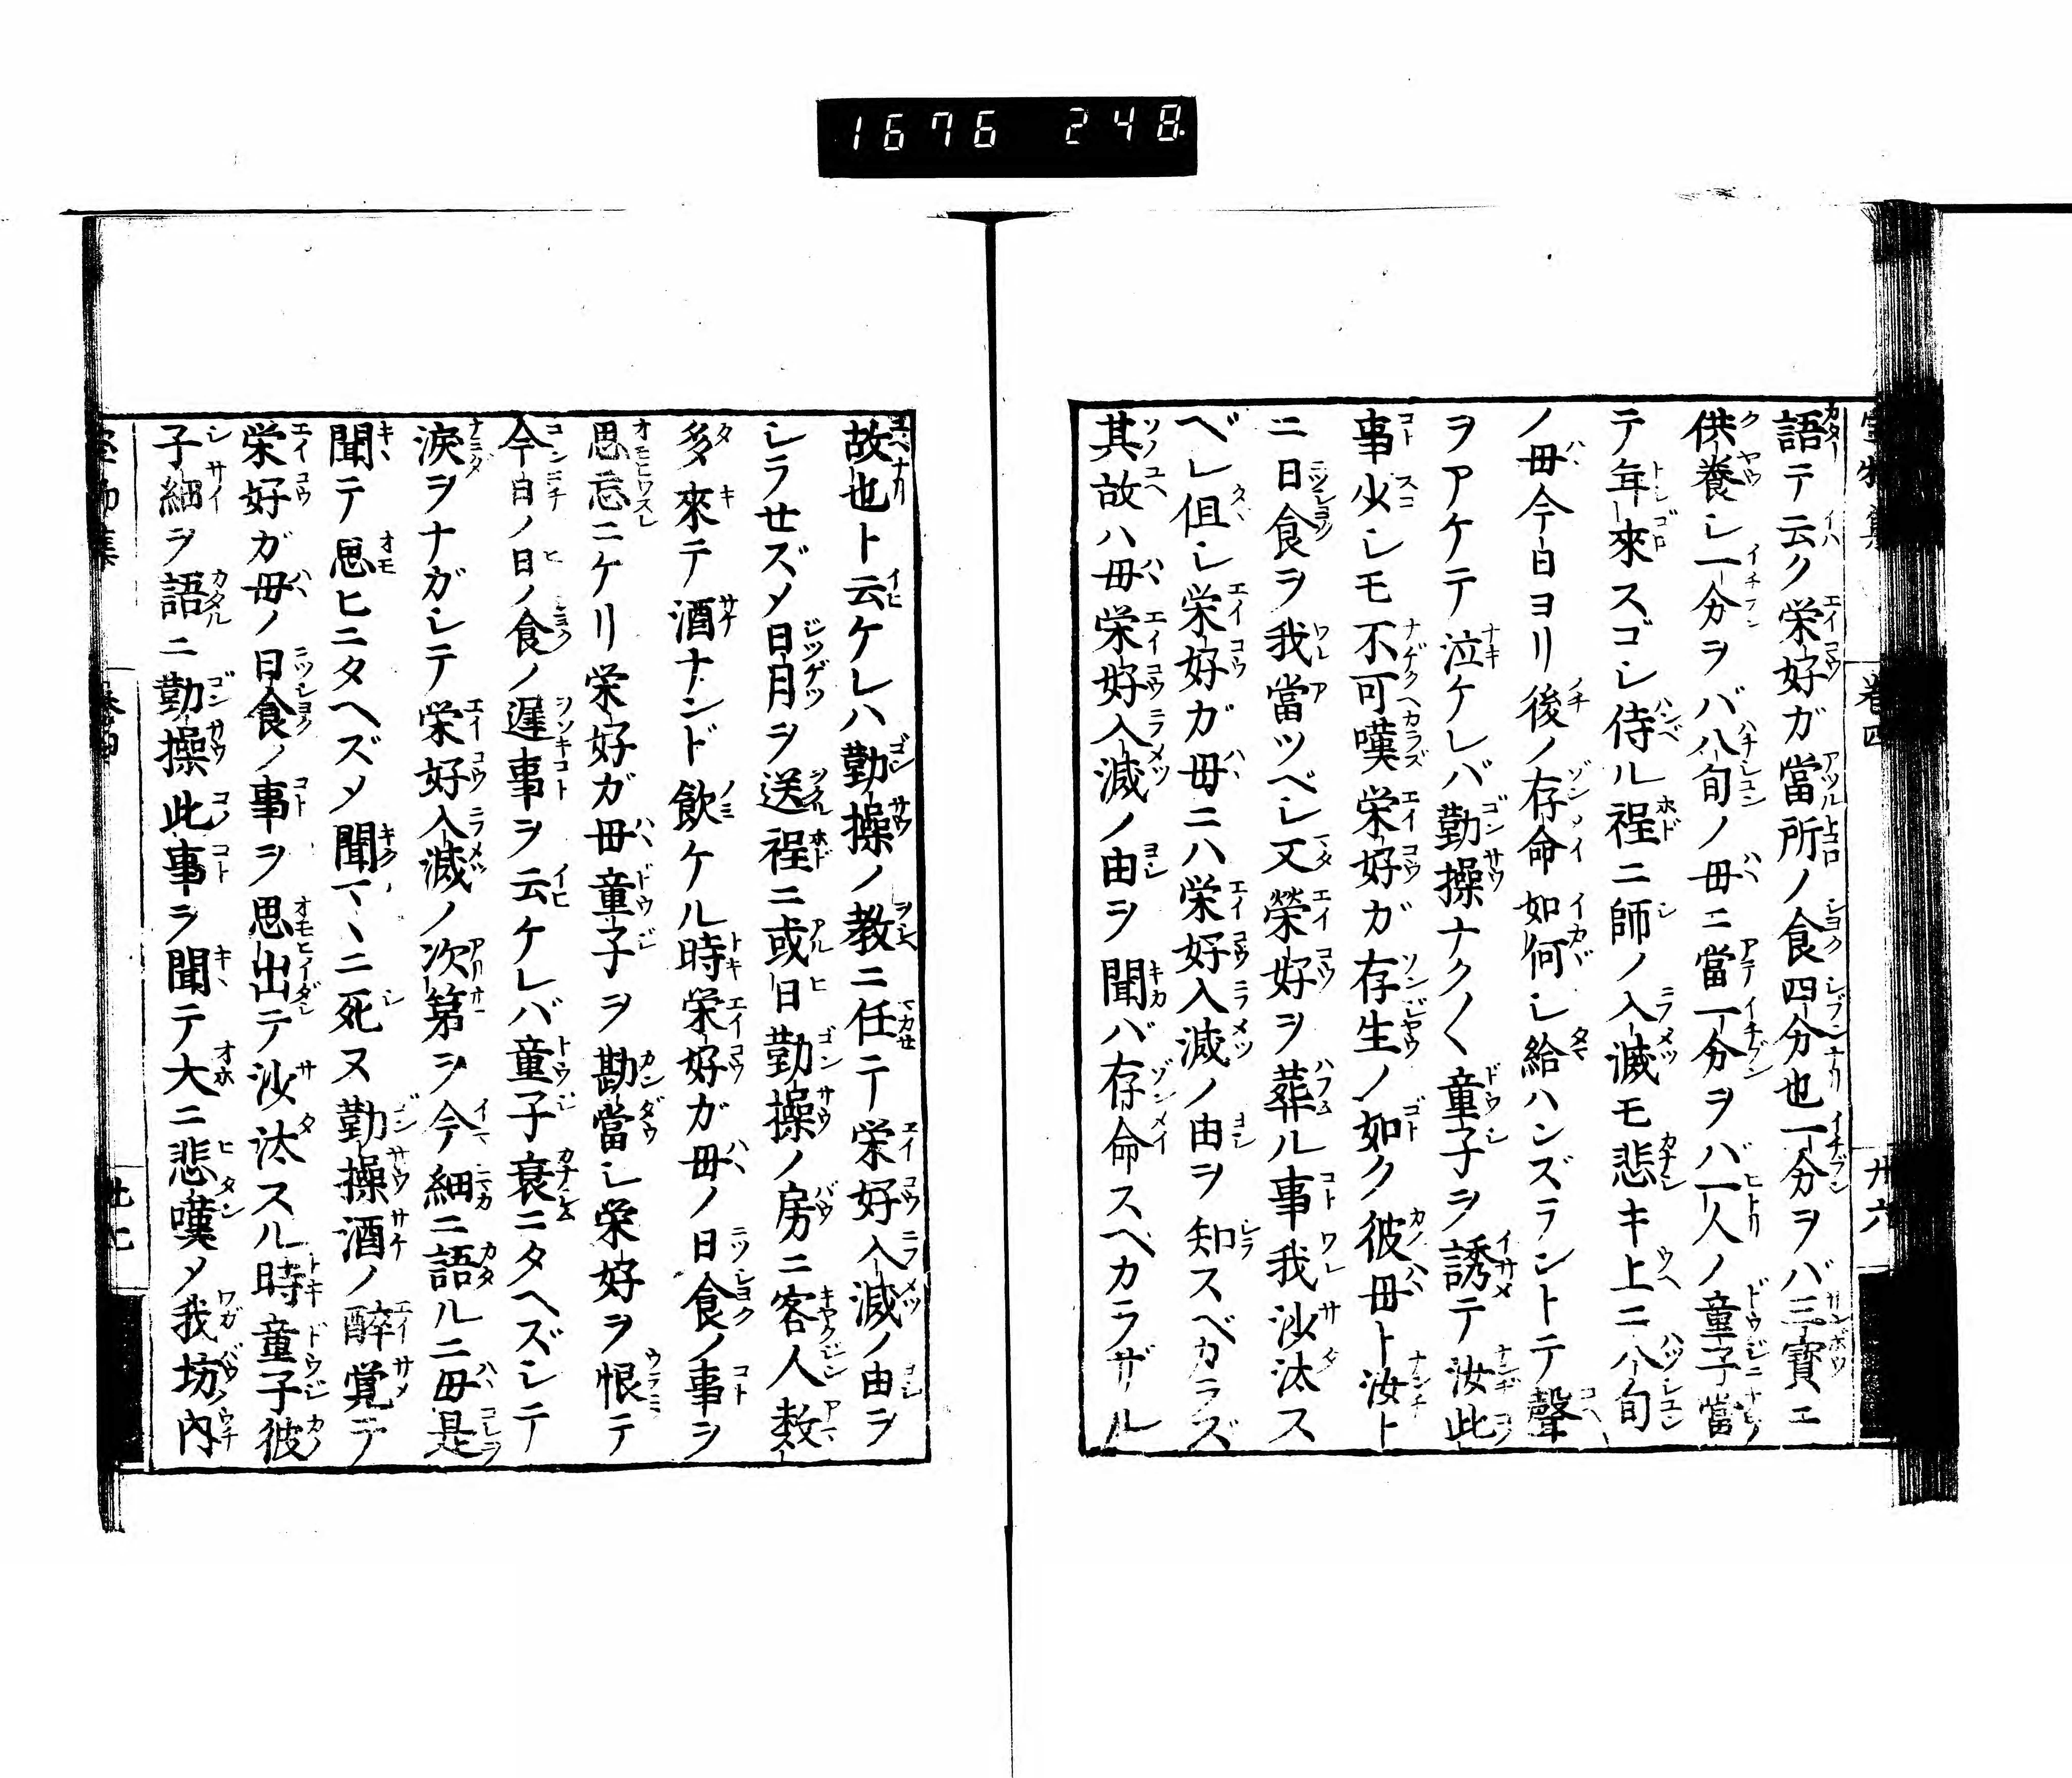 1676 248
語テ云ク栄好ガ當所ノ食四分也一分ヲバ三寳ニ
供養シ一分ヲバ八旬ノ母ニ當一分ヲバ一人ノ童子當
テ年來スゴシ侍ル程ニ師ノ入滅モ悲キ上ニ八旬
ノ母今日ヨリ後ノ存命如何シ給ハンズラントテ聲
ヲアケテ泣ケレバ勤操ナク〱童子ヲ誘テ汝此
事少シモ不可嘆栄好ガ存生ノ如ク彼母ト汝ト
ニ日食ヲ我當ツベシ又榮好ヲ葬ル事我沙汰ス
ベシ但シ栄好ガ母ニハ栄好入滅ノ由ヲ知スベカラズ
其故ハ母栄好入滅ノ由ヲ聞バ存命スベカラザル
巻四
廿六
故也ト云ケレハ勤操ノ教ニ任テ栄好入滅ノ由ヲ
シラせズメ日月ヲ送程ニ或日勤操ノ房ニ客人数
多來テ酒ナンド飲ケル時栄好ガ母ノ日食ノ事ヲ
思忘ニケリ栄好ガ母童子ヲ勘當シ栄好ヲ恨テ
今日ノ日ノ食ノ遅事ヲ云ケレバ童子哀ニタヘズシテ
涙ヲナガシテ栄好入滅ノ次第ヲ今細ニ語ルニ母是
聞テ思ヒニタヘズメ聞マヽニ死ヌ勤操酒ノ醉覚テ
栄好ガ母ノ日食ノ事ヲ思出テ沙汰スル時童子彼
子細ヲ語ニ勤操此事ヲ聞テ大ニ悲嘆メ我坊内